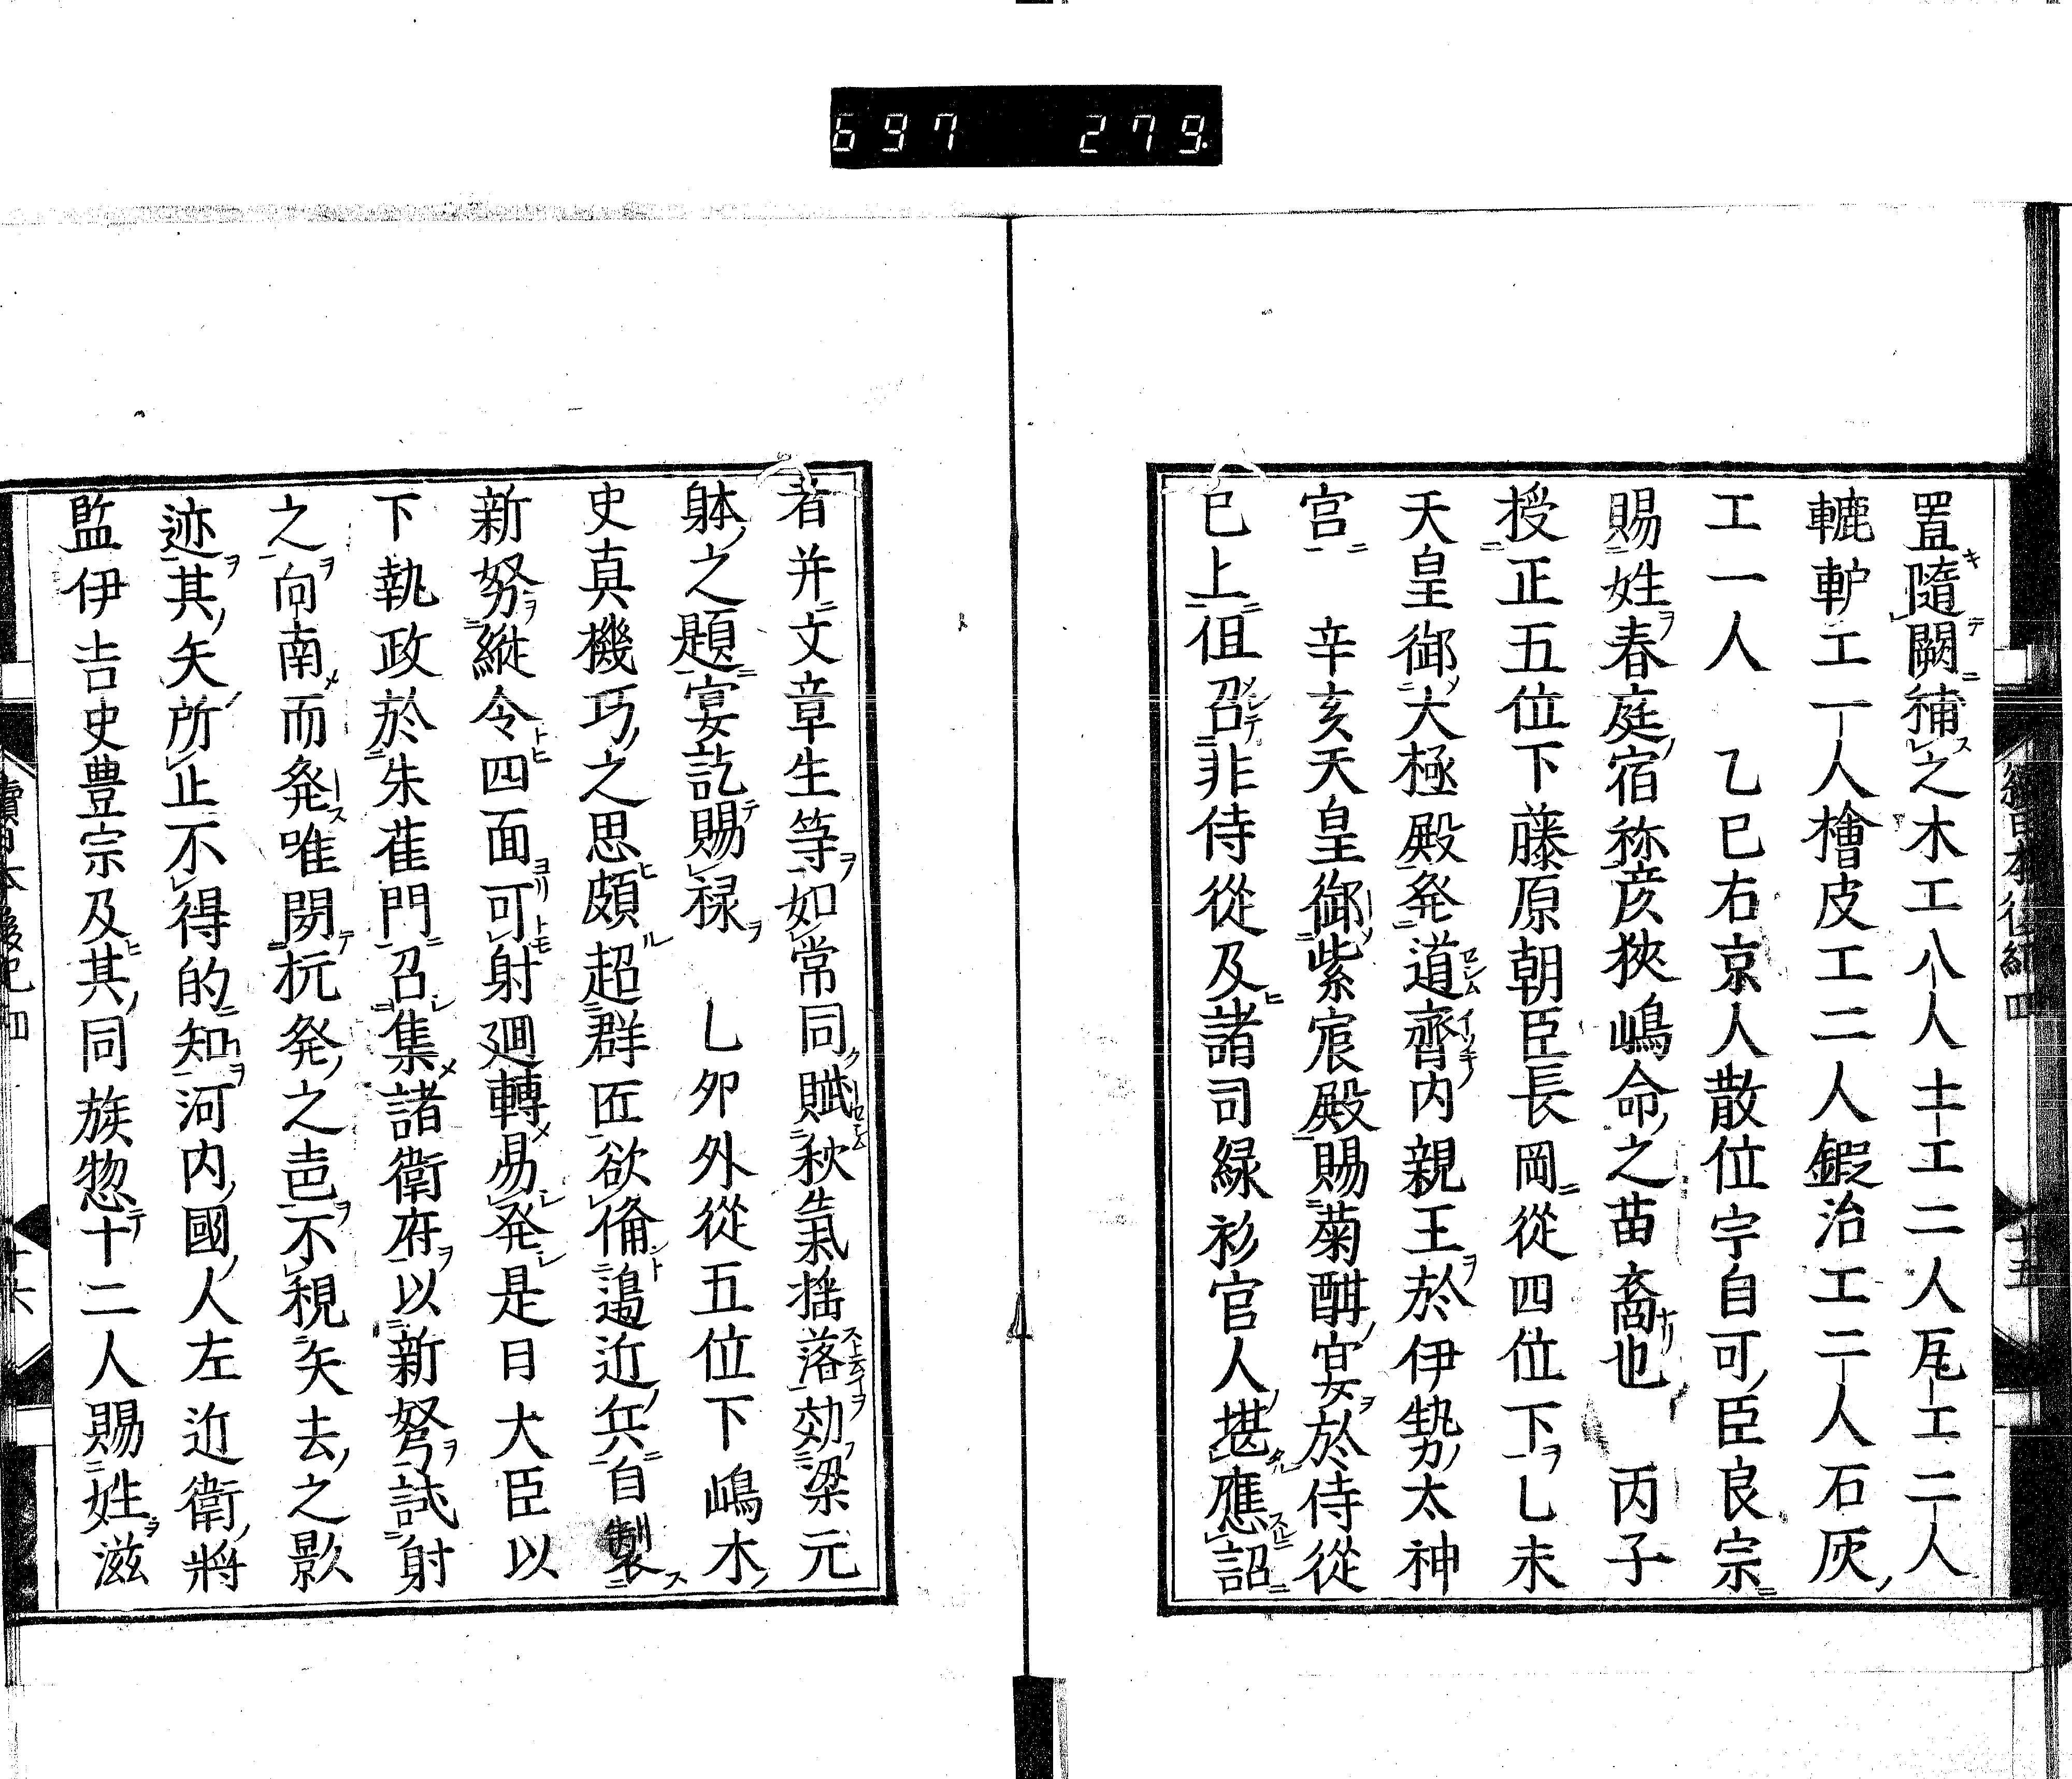 697 279
置隨闕補之木工八人土工二人瓦工二人
轆轤工一人檜皮工二人鍛冶工二人石灰
工一人　乙巳右京人散位宇自可臣良宗
賜姓春庭宿祢彦狹嶋命之苗裔也　丙子
授正五位下藤原朝臣長岡從四位下乙未
天皇御大極殿発遣齊内親王於伊勢太神
宮　辛亥天皇御紫宸殿賜菊酣宴於侍從
已上徂召非侍從及諸司緑衫官人堪應詔
續日本後紀四　十五
者并文章生等如常同賦秋氣揺落効梁元
躰之題宴訖賜禄　乙卯外從五位下嶋木
史真機巧之思頗超群匠欲備邊近兵自製
新弩縱令四面可射廻轉易発是日大臣以
下執政於朱雀門召集諸衛府以新弩試射
之向南而発唯聞抏発之声不視矢去之影
迹其矢所止不得的知河内國人左近衛將
監伊吉史豊宗及其同族惣十二人賜姓滋
續日本後紀四　十六